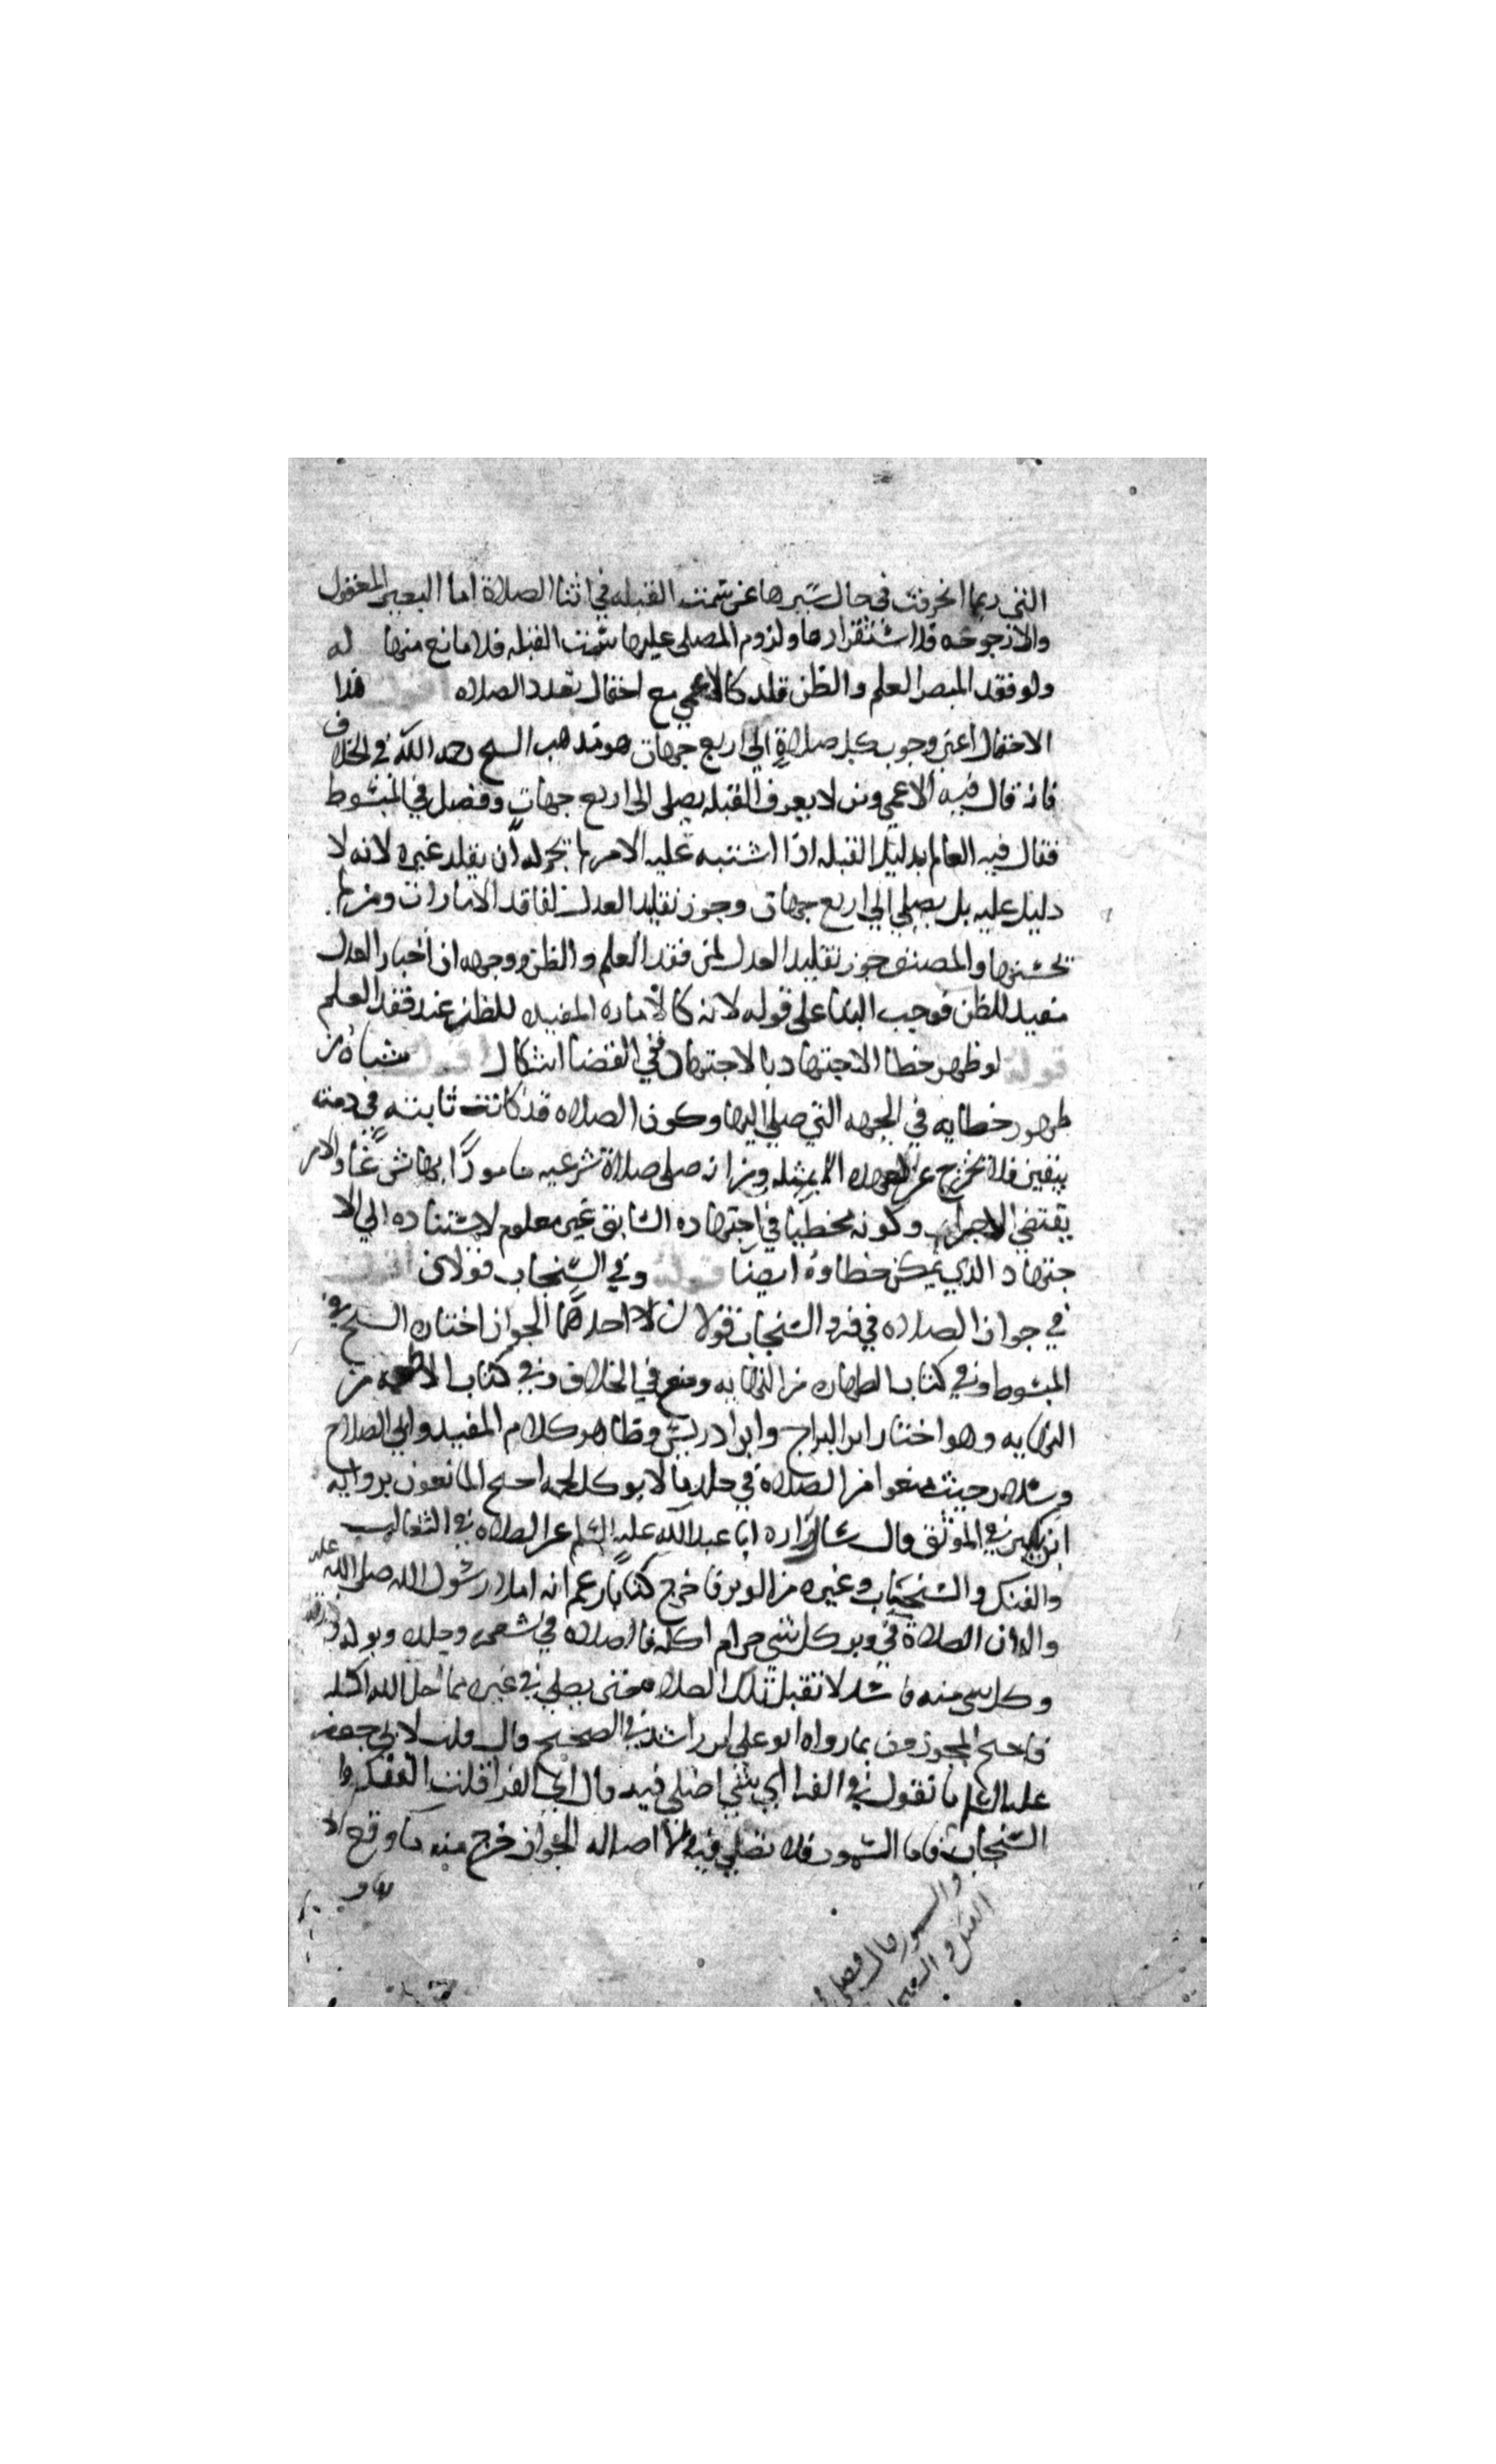 التي ربما انحرفت في حال سيرها عن سمت القبله في اثنا الصلاة اما البعير المعقول
والارجوحه فلا استقرارها ولزوم المصلى عليها سمت القبله فلا مانع منها له
ولو فقد المبصر العلم والظن قلد كالاعمى مع احتمال تعدد الصلاه اقول هذا
الاحتمال اعني وجوب كل صلاةٍ الى اربع جهات هو مذهب الشيخ رحمه الله في الخلاف
فانه قال فيه الاعمى ومن لا يعرف القبله يصلى الى اربع جهاتٍ وفصل في المبسوط
فقال فيه العالم بدليل القبله اذا اشتبه عليه الامر لم يجز له أن يقلد غيره لانه لا
دليل عليه بل يصلي الى اربع جهات وجوز تقليد العدل لفاقد الامارات ومن لم
يحسنها والمصنف جوز تقليد العدل لمن فقد العلم والظن ووجهه ان اخبار العدل
مفيد للظن فوجب البنا على قوله لانه كالاماره المفيده للظن عند فقد العلم
قوله لو ظهر خطا الاجتهاد بالاجتهاد ففي القضا اشكال اقول منشاه من
ظهور خطايه في الجهه التي صلى اليها وكون الصلاه قد كانت ثابته في ذمته
بيقين فلا تخرج عن العهده الا بمثله ومن انه صلى صلاة شرعيه مامورًا بها شرعًا والامر
يقتضي الاجزاء وكونه مخطيًا في اجتهاده السابق غير معلوم لاستناده الى الا
جتهاد الذي يمكن خطاوه ايضًا قوله وفي السنجاب قولان اقول
في جواز الصلاه في فرو السنجاب قولان احدهما الجواز اختاره الشيخ في
المبسوط وفي كتاب الطهاره من النهايه ومنع في الخلاف وفي كتاب الاطعمه من
النهايه وهو اختيار ابن البراج وابن ادريس وظاهر كلام المفيد وابي الصلاح
وسلار حيث منعوا من الصلاة في جلد ما لا يوكل لحمه احتج المانعون بروايه
ابن بكير في الموثق قال سال زراره ابا عبد الله عليه السلم عن الصلاه في الثعالب
والفنك والسنجاب وغيره من الوبر فاخرج كتابًا زعم انه املا رسول الله صلى الله عليه
واله ان الصلاة في وبر كل شي حرام اكله فالصلاه في شعره وجلده وبوله وروثه
وكل شي منه فاسد لا تقبل تلك الصلاه حتى يصلي في غيره مما احل الله اكله
فاحتج المجوزون بما رواه ابو علي ابن راشد في الصحيح قال قلت لابي جعفر
عليه السلم ما تقول في الفرا اي شي اصلي فيه قال اي الفرا قلت الفنك وا
السنجاب فاما السمور فلا تصلي فيه لنا اصاله الجواز خرج منه ما وقع الا
والسمور قال فصل